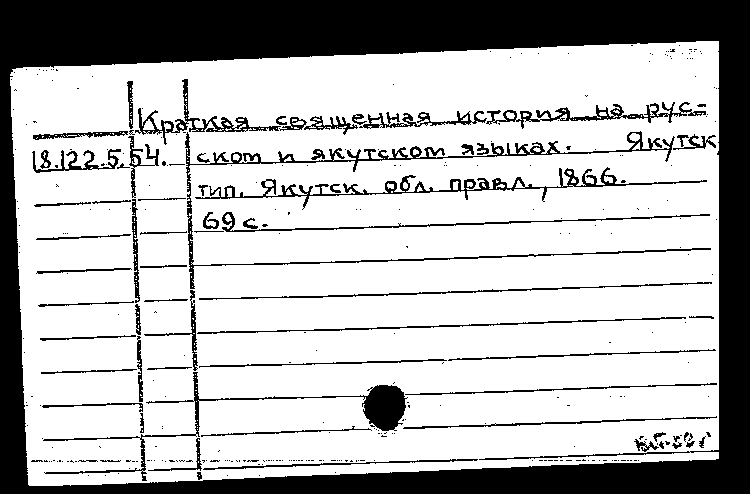 Краткая священная история на рус-
18.122.5.54. ском и якутском языках. Якутск,
тип. Якутск. обл. правл., 1866.
69 с.